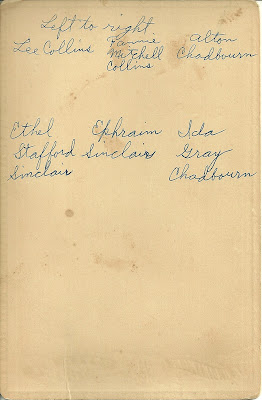 Left to right
Lee Collins Fannie Mitchell Collins Alton Chadbourn
Ethel Ephraim Ida
Stafford Sinclair Gray
Sinclair Chadbourn